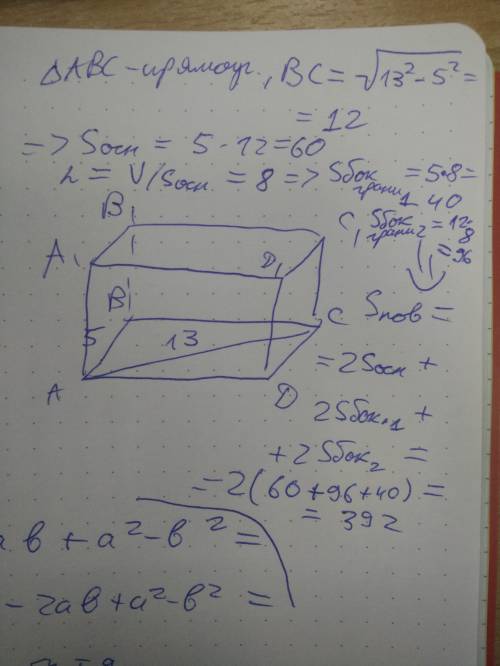 ΔABC - прямоуг., BC = √13² - 5² =
= 12
=> Sосн = 5 · 12 = 60
h = V/Sосн = 8 => Sбок грани 1 = 5·8 =
40
B₁
C₁
Sбок грани 2 = 12·8
= 96
A₁
D₁
B
5
13
C
Sпов =
= 2Sосн +
A
D
2Sбок.1 +
+ 2Sбок2 =
= 2(60+96+40) =
= 392
ab + a² - b² =
- 2ab + a² - b² =